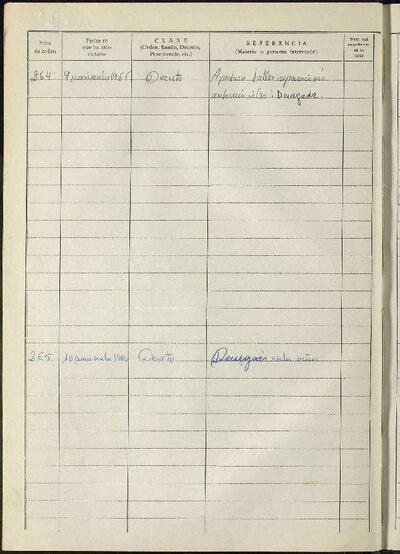 Núm. de orden
Fecha en que ha sido dictado
CLASE
(Orden, Bando, Decreto, Providencia, etc.)
REFERENCIA
(Materia o persona interesada)
Núm. del expediente en su caso
264 9 noviembre 1966 Decreto Apertura Taller reparación
automóviles: Denegada.
265 10 Decreto Denegación